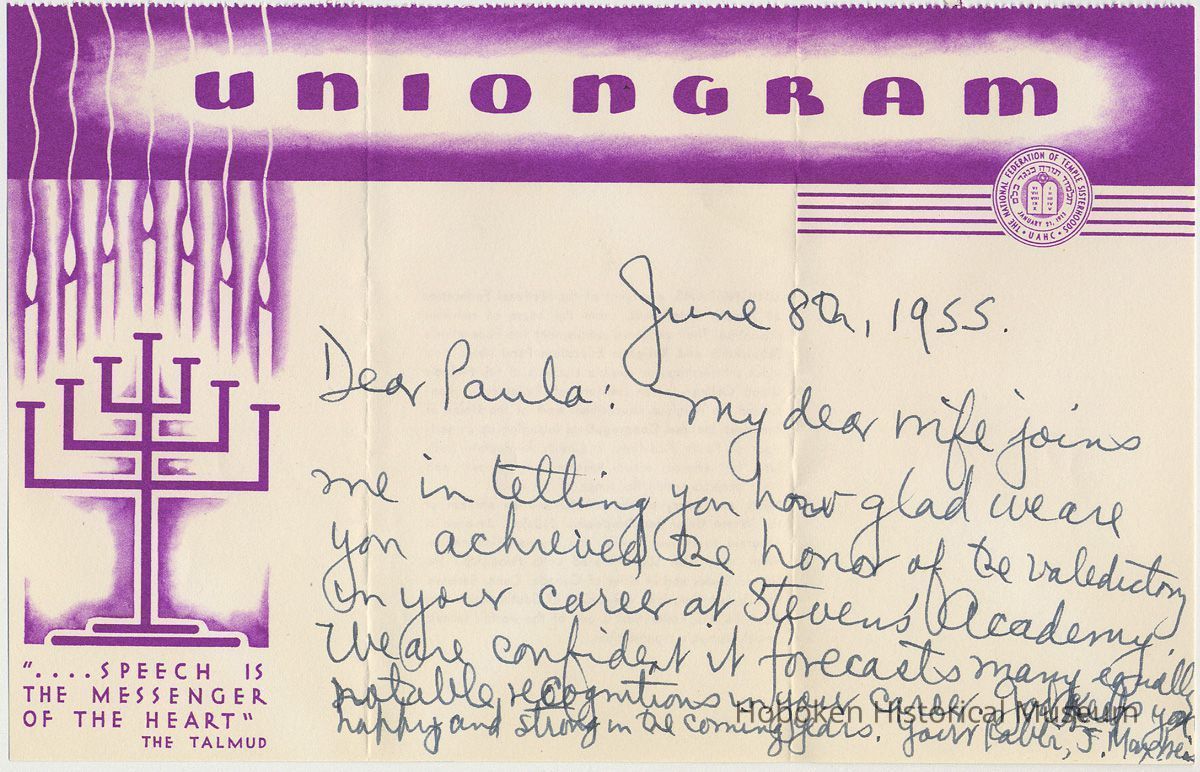 UNIONGRAM
THE NATIONAL FEDERATION OF TEMPLE SISTERHOODS
JANUARY 21, 1913
U A H C
June 8th, 1955.
Dear Paula: My dear wife joins
me in telling you how glad we are
you achieved the honor of the valedictory
in your career at Stevens' Academy.
We are confident it forecasts many equally
notable recognitions in your career. God keep you
happy and strong in the coming years. Your Rabbi, J. Max
Hoboken Historical Museum
"....SPEECH IS
THE MESSENGER
OF THE HEART"
THE TALMUD